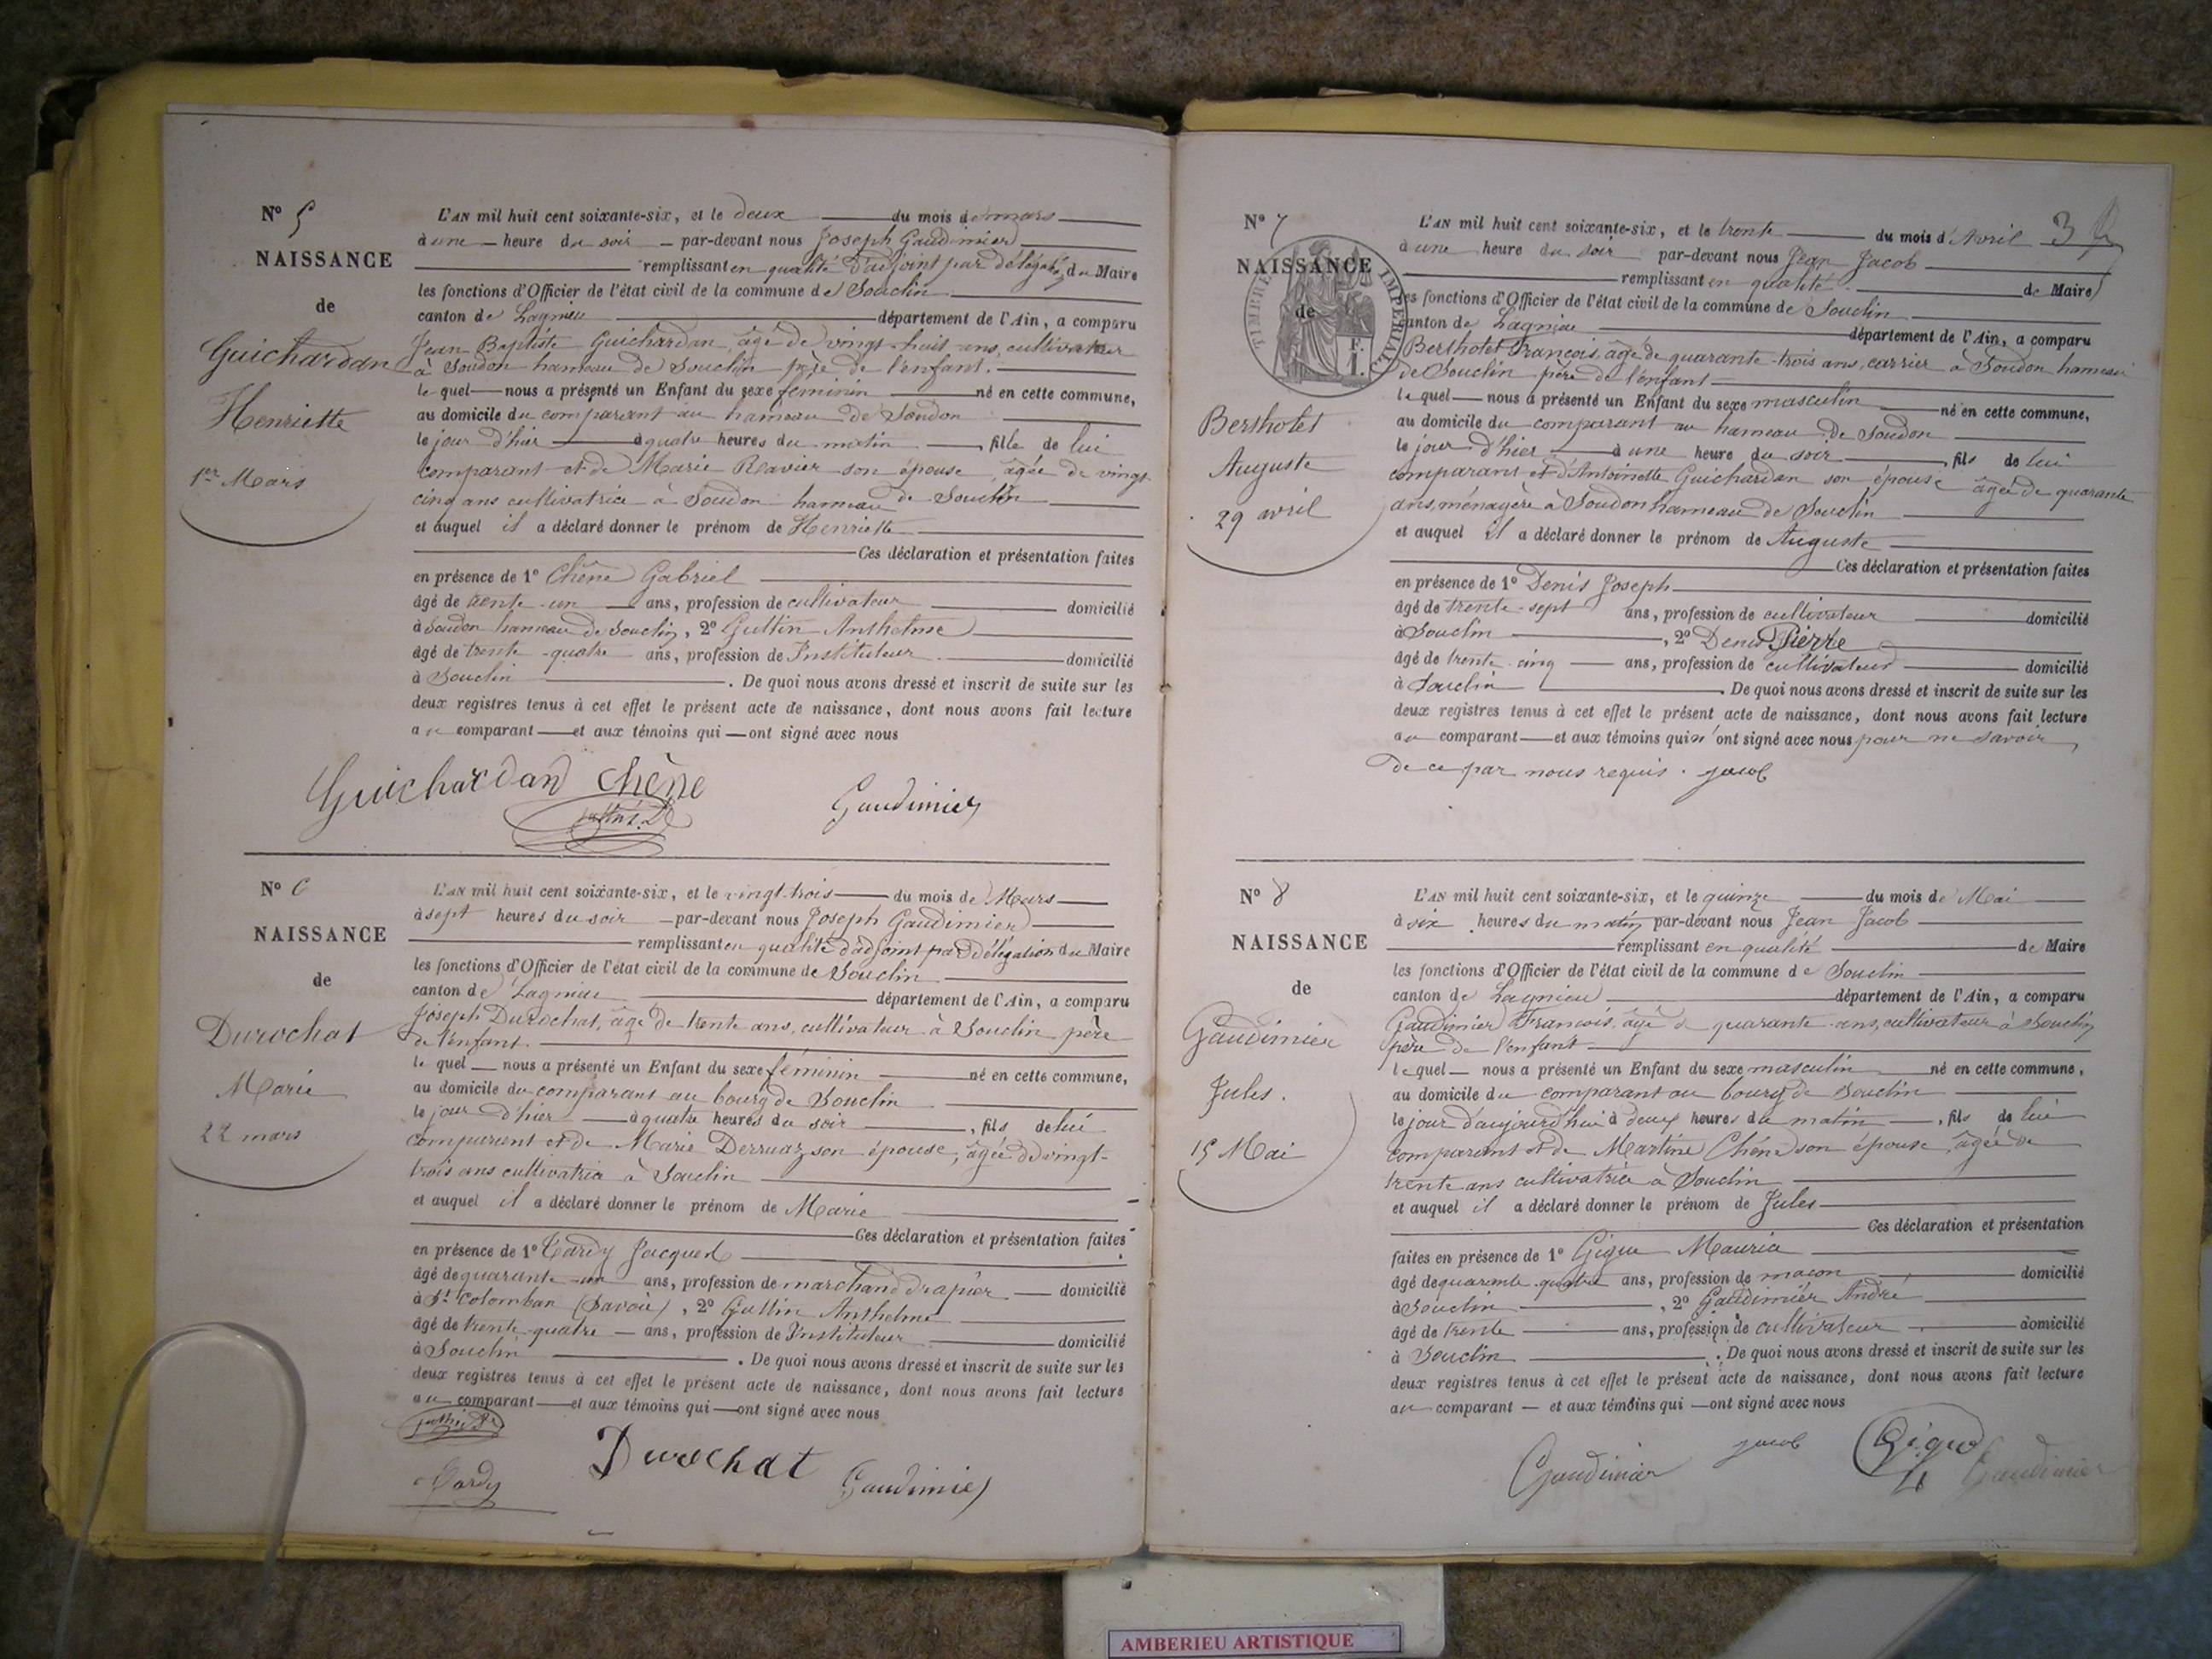 N° 5
NAISSANCE
de
Guichardan
Henriette
1er Mars
L'AN mil huit cent soixante-six, et le deux du mois de mars
à une heure du soir par-devant nous Joseph Gaudimier
remplissant en qualité d'adjoint par délégation du Maire
les fonctions d'Officier de l'état civil de la commune de Souclin
canton de Lagnieu département de l'Ain, a comparu
Jean Baptiste Guichardan, âgé de vingt-huit ans, cultivateur
à Soudon hameau de Souclin père de l'enfant.
lequel nous a présenté un Enfant du sexe féminin né en cette commune,
au domicile du comparant au hameau de Soudon
le jour d'hier à quatre heures du matin fille de lui
comparant et de Marie Ravier son épouse, âgée de vingt-
cinq ans cultivatrice à Soudon hameau de Souclin
et auquel il a déclaré donner le prénom de Henriette
Ces déclaration et présentation faites
en présence de 1° Chêne Gabriel
âgé de trente-un ans, profession de cultivateur domicilié
à Soudon hameau de Souclin, 2° Guttin Anthelme
âgé de trente-quatre ans, profession de Instituteur domicilié
à Souclin. De quoi nous avons dressé et inscrit de suite sur les
deux registres tenus à cet effet le présent acte de naissance, dont nous avons fait lecture
au comparant et aux témoins qui ont signé avec nous
Guichardan Chêne
Gaudimier
N° 6
NAISSANCE
de
Durochat
Marie
22 mars
L'AN mil huit cent soixante-six, et le vingt-trois du mois de Mars
à sept heures du soir par-devant nous Joseph Gaudimier
remplissant en qualité d'adjoint par délégation du Maire
les fonctions d'Officier de l'état civil de la commune de Souclin
canton de Lagnieu département de l'Ain, a comparu
Joseph Durochat, âgé de trente ans, cultivateur à Souclin père
de l'enfant.
lequel nous a présenté un Enfant du sexe féminin né en cette commune,
au domicile du comparant au bourg de Souclin
le jour d'hier à quatre heures du soir, fils de lui
comparant et de Marie Derruaz son épouse, âgée de vingt-
trois ans cultivatrice à Souclin
et auquel il a déclaré donner le prénom de Marie
Ces déclaration et présentation faites
en présence de 1° Tardy Jacques
âgé de quarante-un ans, profession de marchand drapier domicilié
à St Colomban (Savoie), 2° Guttin Anthelme
âgé de trente-quatre ans, profession de Instituteur domicilié
à Souclin. De quoi nous avons dressé et inscrit de suite sur les
deux registres tenus à cet effet le présent acte de naissance, dont nous avons fait lecture
au comparant et aux témoins qui ont signé avec nous
Durochat
Tardy
Gaudimier
3
N° 7
NAISSANCE
de
TIMBRE IMPERIAL
1 F.
Bertholet
Auguste
29 avril
L'AN mil huit cent soixante-six, et le trente du mois d'Avril
à une heure du soir par-devant nous Jean Jacob
remplissant en qualité de Maire
les fonctions d'Officier de l'état civil de la commune de Souclin
canton de Lagnieu département de l'Ain, a comparu
Bertholet François, âgé de quarante-trois ans, carrier à Soudon hameau
de Souclin père de l'enfant
lequel nous a présenté un Enfant du sexe masculin né en cette commune,
au domicile du comparant au hameau de Soudon
le jour d'hier à une heure du soir, fils de lui
comparant et d'Antoinette Guichardan son épouse âgée de quarante
ans, ménagère à Soudon hameau de Souclin
et auquel il a déclaré donner le prénom de Auguste
Ces déclaration et présentation faites
en présence de 1° Denis Joseph
âgé de trente-sept ans, profession de cultivateur domicilié
à Souclin, 2° Denis Pierre
âgé de trente-cinq ans, profession de cultivateur domicilié
à Souclin. De quoi nous avons dressé et inscrit de suite sur les
deux registres tenus à cet effet le présent acte de naissance, dont nous avons fait lecture
au comparant et aux témoins qui n'ont signé avec nous pour ne savoir,
de ce par nous requis. Jacob
N° 8
NAISSANCE
de
Gaudimier
Jules.
15 Mai
L'AN mil huit cent soixante-six, et le quinze du mois de Mai
à six heures du matin par-devant nous Jean Jacob
remplissant en qualité de Maire
les fonctions d'Officier de l'état civil de la commune de Souclin
canton de Lagnieu département de l'Ain, a comparu
Gaudimier François, âgé de quarante ans, cultivateur à Souclin
père de l'enfant
lequel nous a présenté un Enfant du sexe masculin né en cette commune,
au domicile du comparant au bourg de Souclin
le jour d'aujourd'hui à deux heures du matin, fils de lui
comparant et de Martine Chêne son épouse, âgée de
trente ans cultivatrice à Souclin
et auquel il a déclaré donner le prénom de Jules
Ces déclaration et présentation
faites en présence de 1° Gigue Maurice
âgé de quarante-quatre ans, profession de maçon domicilié
à Souclin, 2° Gaudimier André
âgé de trente ans, profession de cultivateur domicilié
à Souclin. De quoi nous avons dressé et inscrit de suite sur les
deux registres tenus à cet effet le présent acte de naissance, dont nous avons fait lecture
au comparant et aux témoins qui ont signé avec nous
Gaudimier Jacob Gigue Gaudimier
AMBERIEU ARTISTIQUE